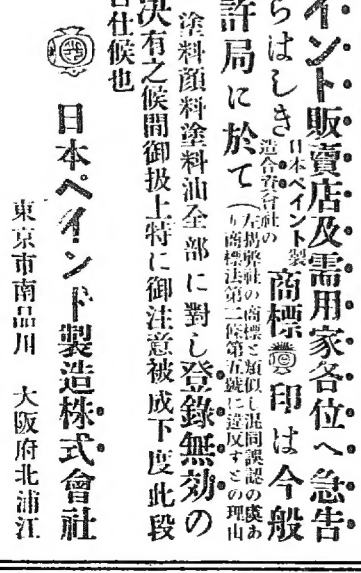 イント販賣店及需用家各位へ急告
らはしき
日本ペイント製
造合資會社の
商標
印は今般
許局に於て
(左揭弊社の商標と類似し混同誤認の虞あ
り商標法第二條第五號に違反すとの理由
塗料顔料塗料油全部に對し登錄無効の
決有之候間御扱上特に御注意被成下度此段
告仕候也
日本ペイント製造株式會社
東京市南品川 大阪府北浦江